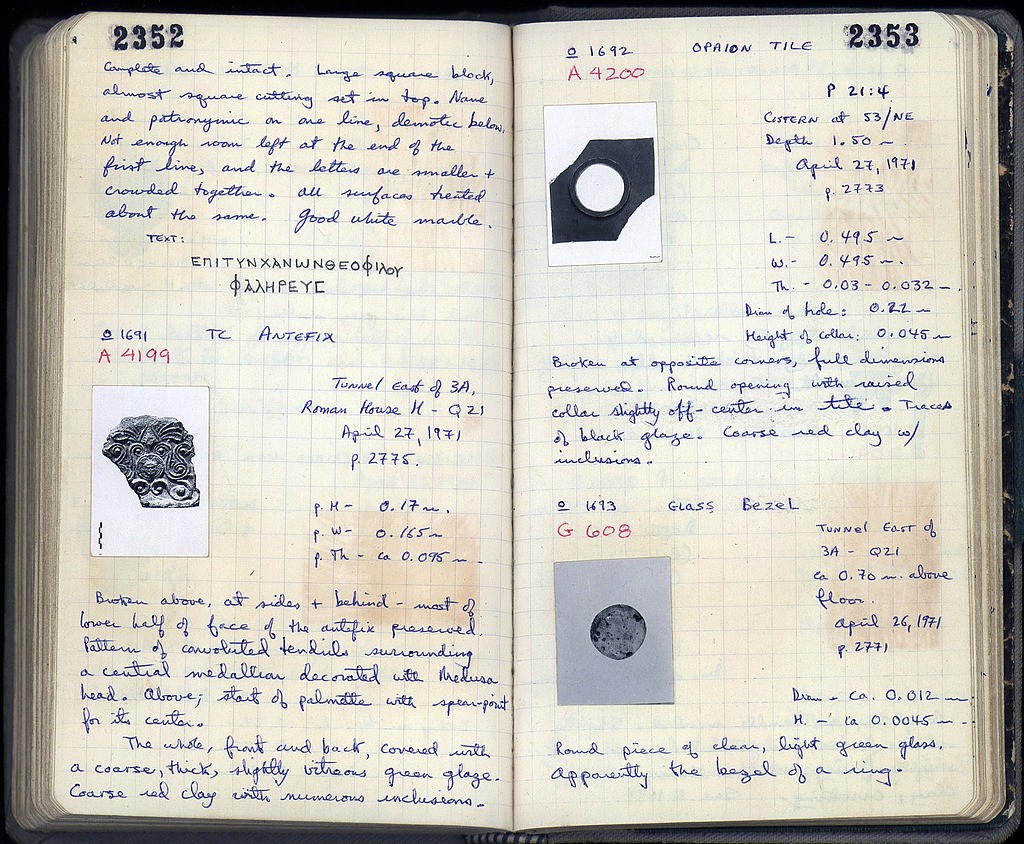 2352
Complete and intact. Large square block,
almost square cutting set in top. Name
and patronymic on one line, demotic below.
Not enough room left at the end of the
first line, and the letters are smaller +
crowded together. All surfaces treated
about the same. Good white marble.
TEXT:
ΕΠΙΤΥΝΧΑΝΩΝΘΕΟΦΙΛΟΥ
ΦΑΛΗΡΕΥΣ
Ο 1691 TC ANTEFIX
A 4199
TUNNEL East of 3A,
Roman House H - Q21
April 27, 1971
p. 2775.
p. H - 0.17 m.
p. W - 0.165 m
p. Th - ca 0.095 m -
Broken above, at sides + behind - most of
lower half of face of the antefix preserved.
Pattern of convoluted tendrils surrounding
a central medallion decorated with Medusa
head. Above; start of palmette with spear-point
for its center.
The whole, front and back, covered with
a coarse, thick, slightly vitreous green glaze.
Coarse red clay with numerous inclusions.
2353
Ο 1692 OPAION TILE
A 4200
P 21:4
CISTERN at 53/NE
Depth 1.50 m.
April 27, 1971
p. 2773
L. - 0.495 m
W. - 0.495 m.
Th. - 0.03 - 0.032 m.
Diam of hole: 0.22 m
Height of collar: 0.045 m
Broken at opposite corners, full dimensions
preserved. Round opening with raised
collar slightly off-center in tile. Traces
of black glaze. Coarse red clay w/
inclusions.
Ο 1693 GLASS BEZEL
G 608
TUNNEL EAST of
3A - Q21
ca 0.70 m. above
floor.
April 26, 1971
p. 2771
Diam - ca. 0.012 m
H. - ca 0.0045 m -
Round piece of clear, light green glass.
Apparently the bezel of a ring.